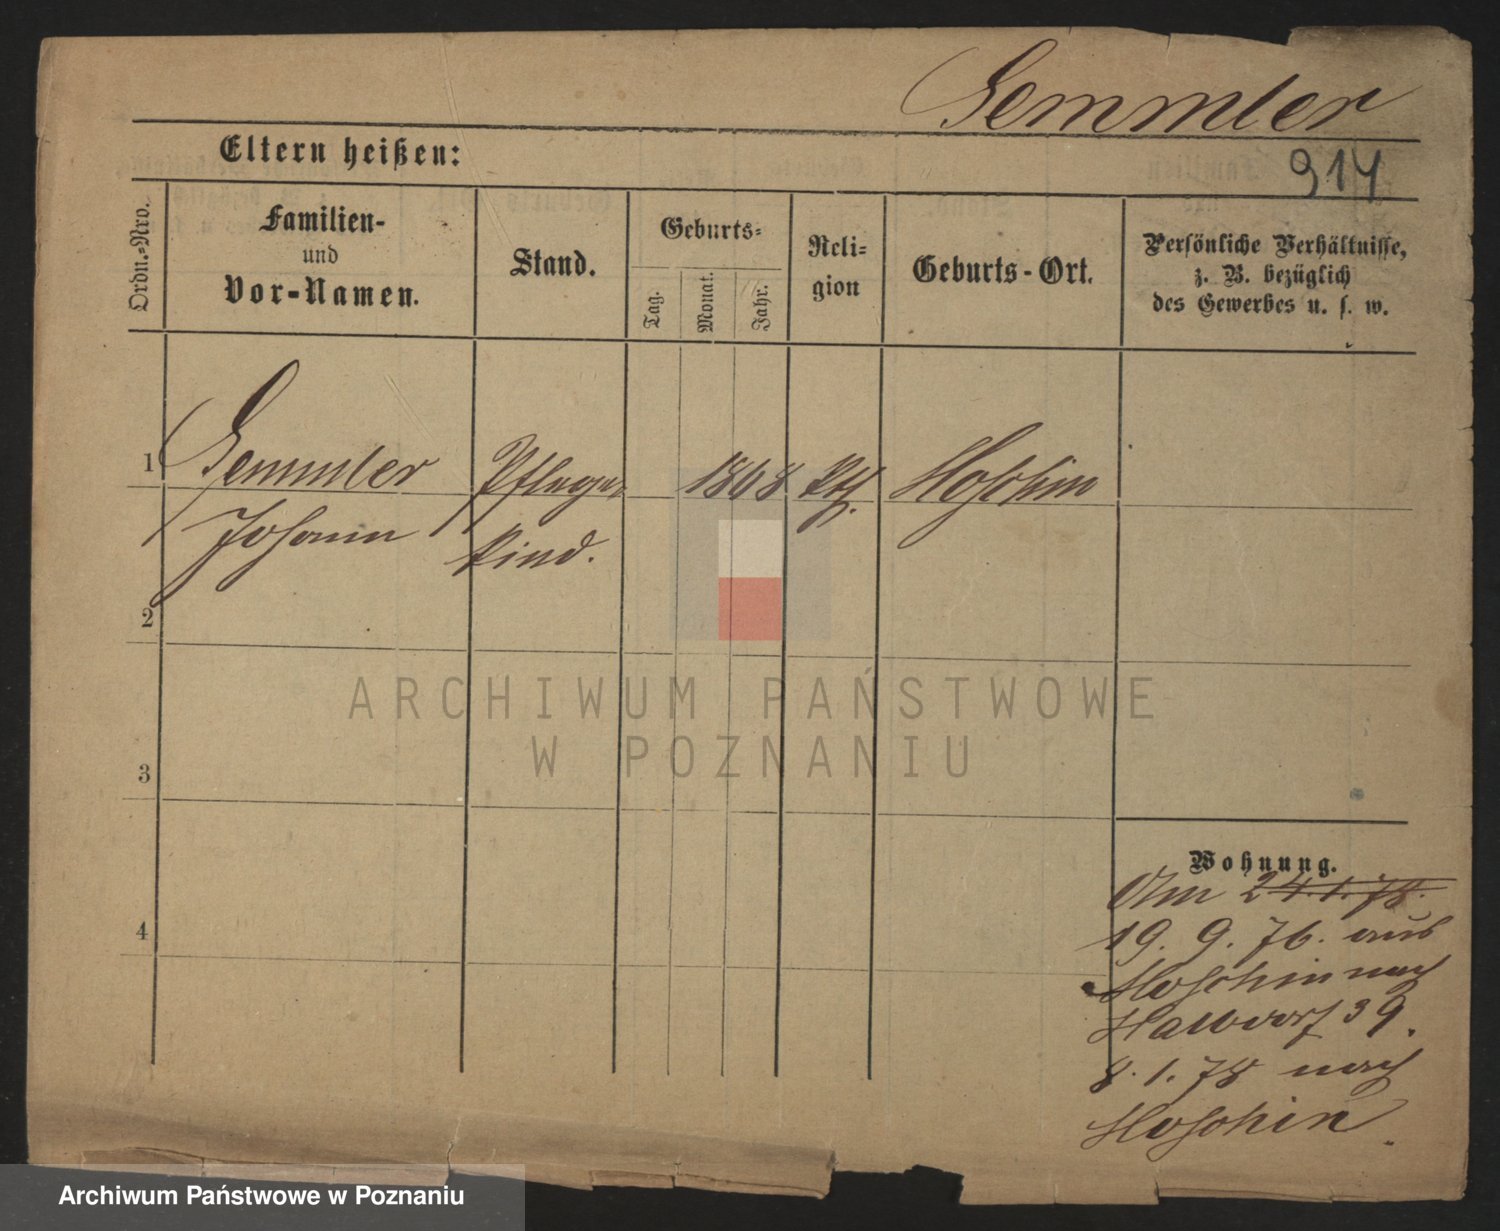 Semmler
Eltern heißen:
914
Ordn.-Nro.
Familien-
und
Vor-Namen.
Stand.
Geburts-
Tag.
Monat.
Jahr.
Reli-
gion
Geburts-Ort.
Persönliche Verhältnisse,
z. B. bezüglich
des Gewerbes u. s. w.
1
Semmler
Johann
Pflege-
kind.
1868
Kth.
Moschin
2
3
4
Wohnung.
Am 24.1.78.
19. 9. 76. aus
Moschin nach
Halbdorf 39.
8. 1. 78 nach
Moschin.
ARCHIWUM PAŃSTWOWE
W POZNANIU
Archiwum Państwowe w Poznaniu